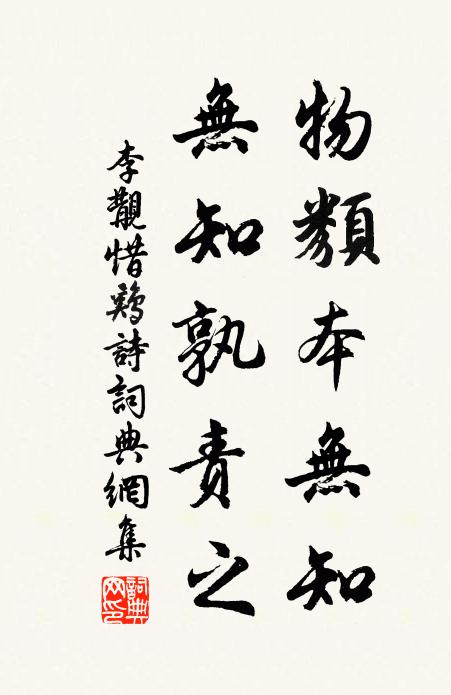 物類本無知
無知孰責之
李覯惜鷄詩詞典網集
詞典
網印